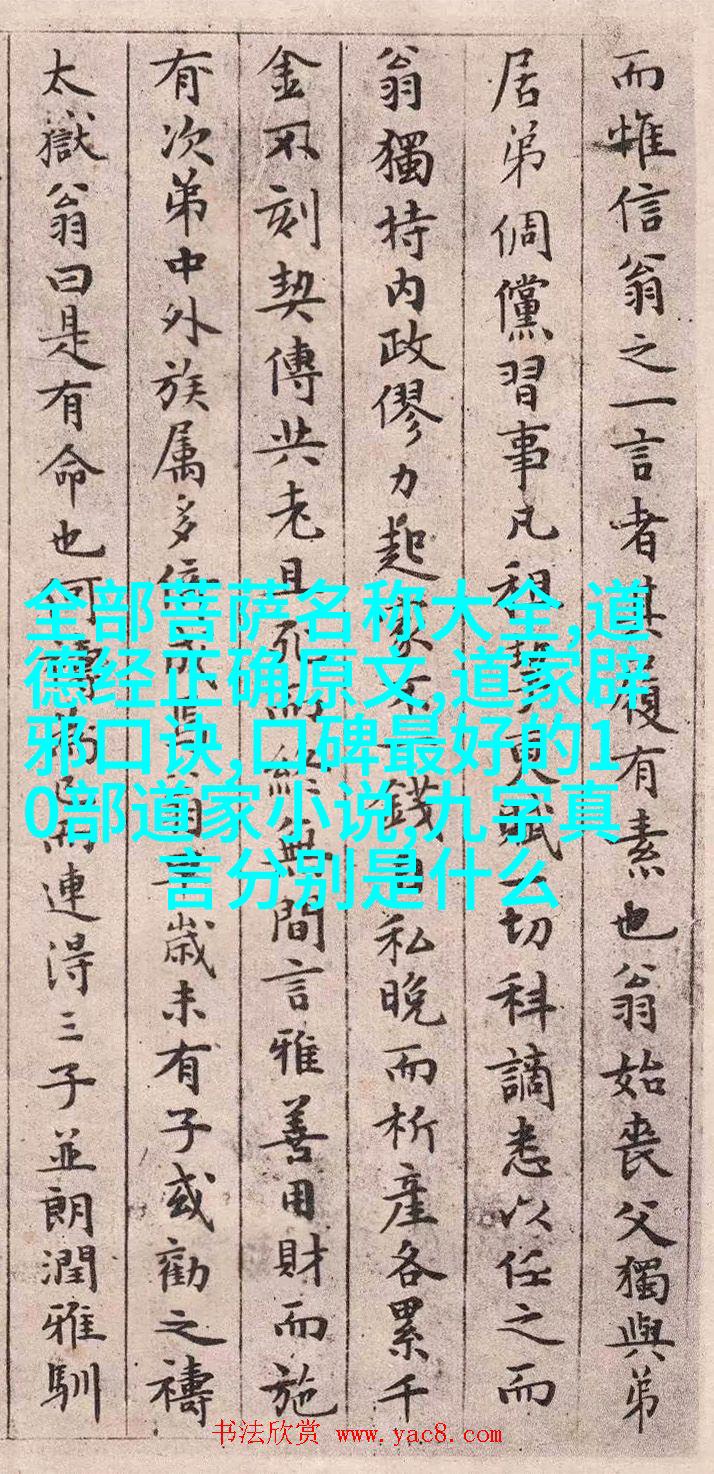 而惟信翁之一言者其履有素也翁始喪父獨與弟
居弟倜儻習事凡租更賦一切科謫悉以任之而
翁獨持内政僇力起家不錢自私晚而析產各累千
金不刻契傳共老且死而終無間言雅善用財而施
有次弟中外族属多倚歲未有子或勸之禱
太嶽翁曰是有命也何禱為已而連得三子並朗潤雅馴
全部菩萨名称大全,道
德经正确原文,道家辟
邪口诀,口碑最好的1
0部道家小说,九字真
言分别是什么
书法欣赏 www.yac8.com